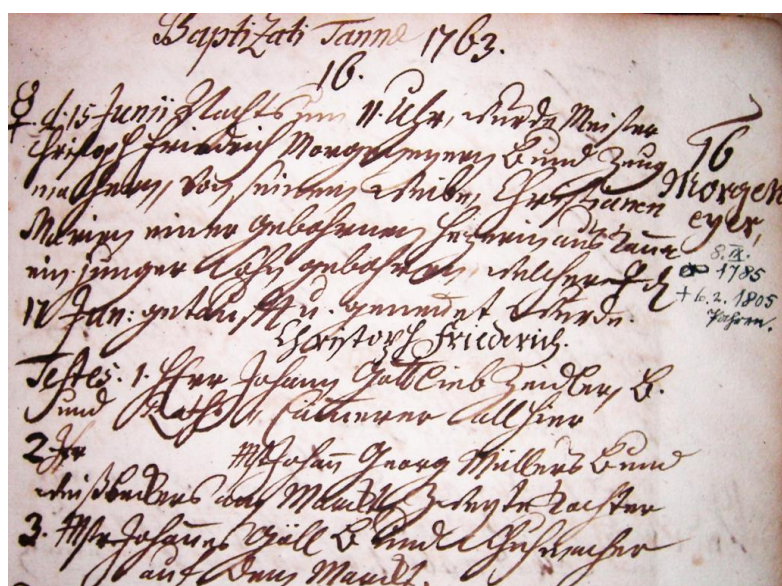 Baptizati Tannæ 1763.
16.
☿. d. 15 Junii Nachts um 11. Uhr, wurde Meister
Christoph Friedrich Morgeneyern B. und Zeug
machern, von seinem Weibe, Christianen
Marien einer gebohrnen aus Tanna
ein junger Sohn gebohren, welcher
17 Jun: getaufft u. genennet wurde.
Christoph Friedrich.
Testes. 1. Herr Johann Gottlieb Zeidler, B.
und Raths Cämmerer allhier
2. Mstr Johann Georg Müllers B. und
Weißbeckers am Marckt Tochter
3. Mstr Johannes Göll B. und
auf dem Marckt.
16
Morgen
eyer,
8. IX.
⚭ 1785
+ 6. 2. 1805